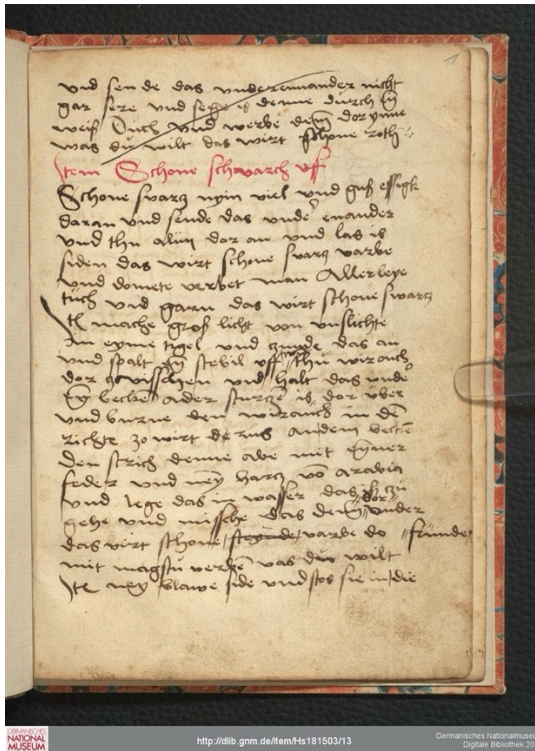 1
vnd sende das vndereinander nicht
gar sere vnd seyge is denne durch
weiß tuch vnd verbe dor ynne
was du wilt das wirt schone roth
Item Schone schwarcz vff
Schone svarcz nym viel vnd guß essigk
daran vnd sende das vnder enander
vnd thu alun dor an vnd las is
siden das wirt schone svarcz varbe
vnd domete verbet man Allerleye
tuch vnd garn das wirt schone swarcz
It mache groß licht von vnslichte
In eyme tigel vnd das an
vnd spalt stebil vff thu wirauch
dor zwisschen vnd halt das vnder
becken ader sturcze is dor vber
vnd burne den wirauch in dem
richte zo wirt der an dem becken
den strich denne abe mit eyner
feder vnd nym harcz von arabia
vnd lege das in wasser das is zu
gehe vnd missche das dor vnder
das wirt schone varbe do
mit magstu verben was du wilt
It nym blawe side vnd stos sie in die
GERMANISCHES
NATIONAL
MUSEUM
http://dlib.gnm.de/item/Hs181503/13
Germanisches Nationalmuseu
Digitale Bibliothek 20